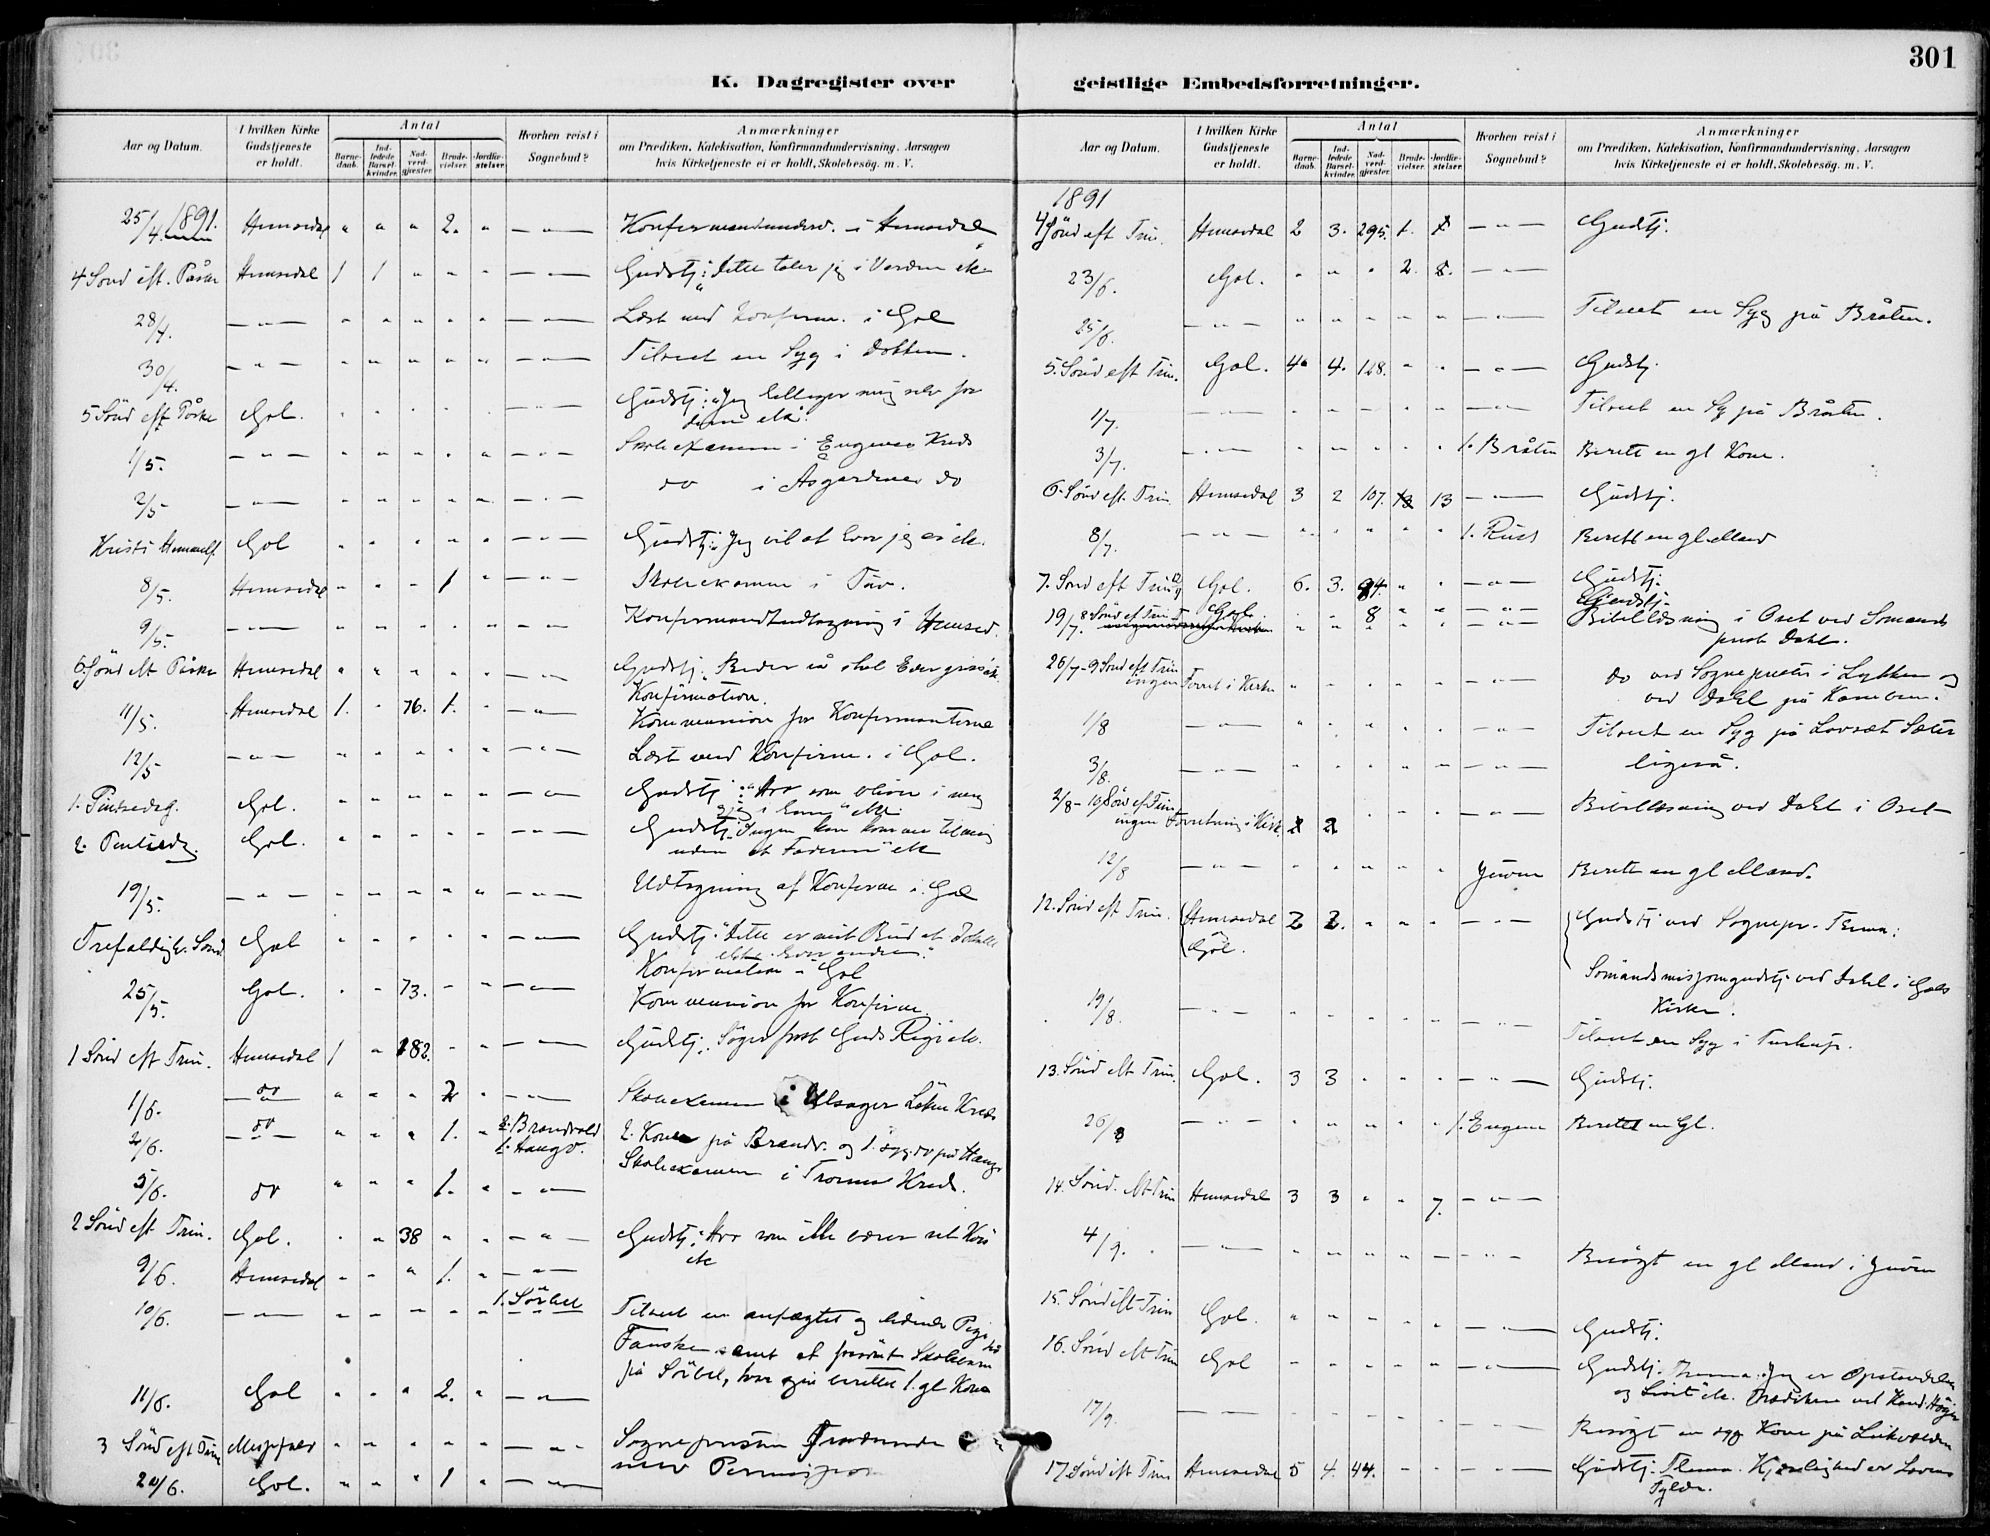 301
K. Dagregister over geistlige Embedsforretninger.
Aar og Datum. | I hvilken Kirke Gudstjeneste er holdt. | Antal | Barnedaab. | Indledede Barselkvinder. | Nadverdgjæster. | Brudevielser. | Jordfæstelser. | Hvorhen reist i Sognebud? | Anmærkninger om Prædiken, Katekisation, Konfirmandundervisning, Aarsagen hvis Kirketjeneste ei er holdt, Skolebesøg. m. V.
25/4. 1891. Hemsedal " " " 2. " — " — Konfirmandunderv. i Hemsedal
4 Sønd eft. Påske Hemsedal 1 1 " " " — " — Gudstj: Dette taler jeg i Verden etc
28/4. — " — " " " " " — " — Læst med Konfirm. i Gol
30/4. — " — " " " " " — " — Tilseet en Syg i Dokken.
5 Sønd eft Påske Gol. " " " " " — " — Gudstj: "Jeg helliger mig selv for
dem etc.
1/5. — " — " " " " " — " — Skoleexamen i Engene Kreds
2/5 — " — " " " " " — " — do i Åsgardene do
Kristi Himmelf. Gol " " " " " — " — Gudstj: Jeg vil at hvor jeg er etc.
8/5. Hemsedal " " " 1 " — " — Skoleexamen i Tuv.
9/5. — " — " " " " " — " — Konfirmandudtagning i Hemsed.
6 Sønd eft Påske Hemsedal " " " " " — " — Gudstj: Beder så skal Eder gives etc.
Konfirmation.
11/5. Hemsedal 1. " 76. 1. " — " — Kommunion for Konfirmanterne
12/5 — " — " " " " " — " — Læst med Konfirm. i Gol.
1. Pintsedag. Gol. " " " " " — " — Gudstj: "Hvo som bliver i mig
og jeg i ham" etc.
2. Pintsedg. Gol. " " " " " — " — Gudstj: Ingen kan komme til mig
uden at Faderen" etc
19/5. — " — " " " " " — " — Udtagning af Konfirm i Gol
Trefoldigh. Sønd. Gol " " " " " — " — Gudstj. "Dette er mit Bud at I skulle
elske hverandre".
Konfirmation i Gol
25/5. Gol. " " 73. " " — " — Kommunion for Konfirm.
1 Sønd eft Trin. Hemsedal 1 " 182. " " — " — Gudstj. Søger først Guds Rige etc.
1/6. do " " " 2 " — " — Skoleexamen i Ulsager Løkne Kreds
2/6. do " " " 1. " 2. Brandvold 2. Koner på Brandv. og 1. syg. do på Haug
1. Haugo.
5/6. do " " " 1. " — " — Skoleexamen i Kreds.
2 Sønd eft Trin. Gol. " " 38 " " — " — Gudstj. Hvo som ikke bærer sit Kors
etc
9/6. Hemsedal " " " 1. " — " —
10/6. — " — " " " " " 1. Sørbel Tilseet en anfægtet og lidende Pige på
Fauske samt et Skolebarn
på Sørbel, hvor og berettet 1. gl Kone
11/6. Gol " " " 2. " — " —
3 Sønd eft Trin Messefald " " " " " — " — Sognepresten
med Permission
20/6. Gol. " " " 1 " — " —
Aar og Datum. | I hvilken Kirke Gudstjeneste er holdt. | Antal | Barnedaab. | Indledede Barselkvinder. | Nadverdgjæster. | Brudevielser. | Jordfæstelser. | Hvorhen reist i Sognebud? | Anmærkninger om Prædiken, Katekisation, Konfirmandundervisning, Aarsagen hvis Kirketjeneste ei er holdt, Skolebesøg. m. V.
1891
4 Sønd eft Trin. Hemsedal 2 3. 295. 1. — " — Gudtj.
23/6. Gol. " " " 2. 8. — " —
25/6. — " — " " " " " — " — Tilseet en Syg på Bråten.
5. Sønd eft Trin. Gol. 4 4. 128. " " — " — Gudstj.
1/7. — " — " " " " " — " — Tilseet en Sg på Bråten.
3/7. — " — " " " " " 1. Bråten Berett en gl Kone.
6. Sønd eft Trin. Hemsedal 3 2 107. 13 13 — " — Gudstj.
8/7. — " — " " " " " 1. Rust Berett en gl. Mand
7. Sønd eft Trin 12/7 Gol. 6. 3. 94. " " — " — Gudstj.
19/7. 8 Sønd ef Trin Gol. " " 8 " " — " — Gudstj.
Bibellæsning i Oset ved Sømands
prest Dahl.
26/7 - 9 Sønd eft Trin ingen Forret i Kirken " " " " " — " — do ved Sognepresten i Lykkja og
ved Dahl på Kamben.
1/8 — " — " " " " " — " — Tilseet en Syg på Lovsæt Sæter
3/8. — " — " " " " " — " — ligeså.
2/8 - 10 Sønd ef Trin ingen Forretning i Kirk 2 2 " " " — " — Bibellæsning ved Dahl i Oset
12/8 — " — " " " " " Juven Berett en gl Mand.
12. Sønd eft Trin. Hemsedal og Gol. 2 2. " " " — " — Gudstj ved Sognepr. Tema:
Sømandsmisjonsgudstj ved Dahl i Gols
Kirke.
19/8. — " — " " " " " — " — Tilseet en Syg i
13. Sønd eft Trin. Gol. 3 3 " " " — " — Gudstj.
26/8 — " — " " " " " 1. Engene Berettet en Gl.
14. Sønd. eft Trin Hemsedal 3 3 " " 7. — " —
4/9. — " — " " " " " — " — Besøgt en gl Mand i Juven
15. Sønd eft Trin Gol. " " " " " — " — Gudstj.
16. Sønd eft Trin Gol " " " " " — " — Gudstj. Thema: Jeg er Opstandelsen
og Livet etc. Prædiken ved Kand.
17/9. — " — " " " " " — " — Besøgt en syg Kone på
17 Sønd eft Trin Hemsedal 5 4. 44. " " — " — Gudstj. Thema. Kjærlighed er Lovens
Fylde.